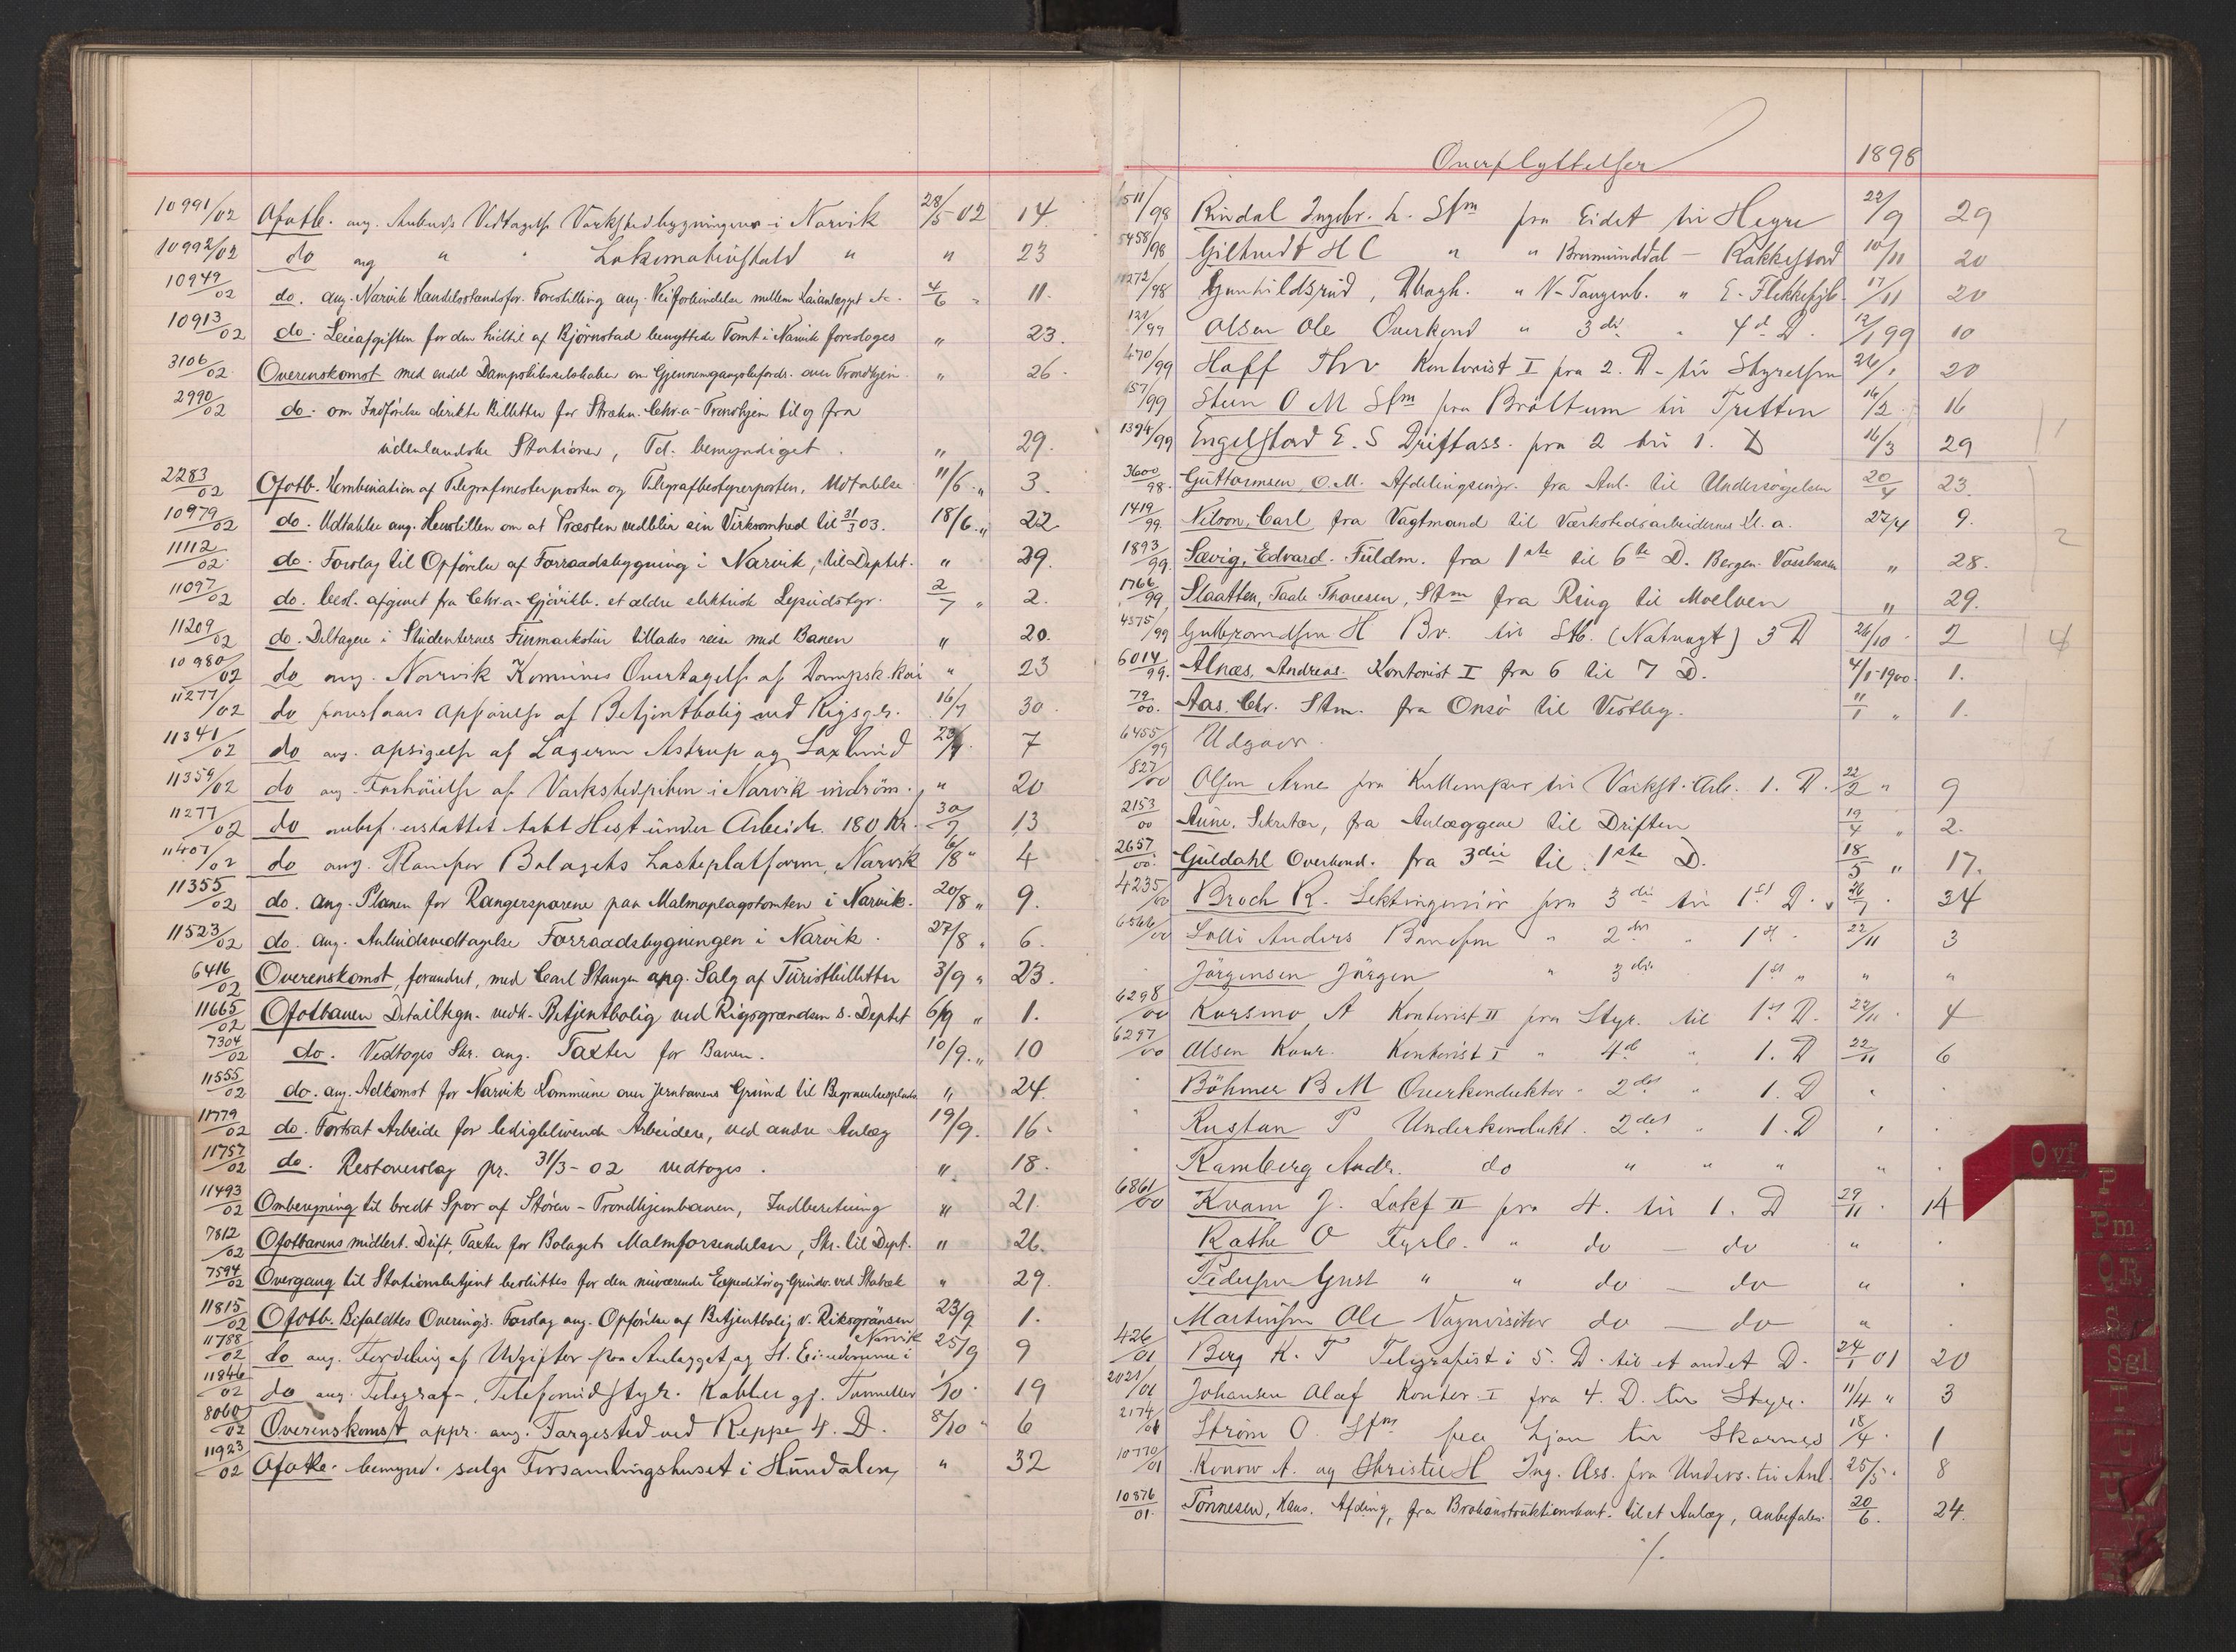 10991/02 Ofotb. ang. Anbuds Vedtagelse Værkstedbygningerne i Narvik 28/5 02 14.
10992/02 do ang " " Lokomotivstald " " 23
10949/02 do. ang. Narvik Handelsstandsfor. Forestilling ang. Veiforbindelse mellem Kaianlægget etc. 4/6 " 11.
10913/02 do. Leieafgiften for den hidtil af Bjørnstad benyttede Tomt i Narvik foreslaaes " 23.
3106/02 Overenskomst med endel Dampskibsselskaber om Gjennemgangsbefordr. over Trondhjem " 26.
2990/02 do. om Indførelse direkte Billetter for Strækn. Chr.a-Trondhjem til og fra
udenlandske Stationer, Td. bemyndiget. " 29.
2283/02 Ofotb. Kombination af Telegrafmesterposten og Telegrafbestyrerposten, Udtalelse 11/6 " 3.
10979/02 do. Udtalelse ang. Henstillen om at Præsten vedbliver sin Virksomhed til 31/3 03. 18/6 " 22
11112/02 do. Forslag til Opførelse af Forraadsbygning i Narvik, til Deptet. " 29.
11097/02 do. Besl. afgivet fra Chr.a-Gjøvikb. et ældre elektrisk 2/7 " 2.
11209/02 do. Deltagere i Studenternes Finmarkstur tillades reise med Banen " 20.
10980/02 do ang. Narvik Komunes Overtagelse af Dampsk.kai " 23
11277/02 do foreslaaes Opførelse af Betjentbolig ved Rigsgr. 16/7 30.
11341/02 do ang. Opsigelse af Lagerm Astrup og Saxlund 23/7. 7
11359/02 do ang. Forhøielse af Værkstedpiben i Narvik indrøm. " 20
11277/02 do anbef. erstattet tabt Hest under Arbeide. 180 Kr. 30/7 13
11407/02 do ang. Plan for Bolagets Lasteplatform, Narvik 6/8 " 4
11355/02 do. ang. Planen for Rangersporene paa Malmoplagstomten i Narvik. 20/8 " 9.
11523/02 do. ang. Anbudsvedtagelse Forraadsbygningen i Narvik. 27/8 " 6.
6416/02 Overenskomst, forandret, med Carl Stangen ang. Salg af Turistbilletter 3/9 " 23.
11665/02 Ofotbanen Detailtegn. vedk. Betjentbolig ved Rigsgrændsen s. Deptet 6/9 " 1.
7304/02 do. Vedtoges Skr. ang. Taxter for Banen. 10/9. " 10
11555/02 do. ang. Adkomst for Narvik Kommune over Jernbanens Grund til Begravelsesplads " 24.
11779/02 do. Fortsat Arbeide for ledigblivende Arbeidere, ved andre Anlæg 19/9. 16.
11757/02 do. Restoverslag pr. 31/3-02 vedtoges. " 18.
11493/02 Ombygning til bredt Spor af Støren-Trondhjembanen, Indberetning " 21.
7812/02 Ofotbanens midlert. Drift, Taxter for Bolagets Malmforsendelser, Skr. til Dept. " 26.
7594/02 Overgang til Stationsbetjent besluttes for den nuværende Expeditør og Grindv. ved Stabæk " 29.
11815/02 Ofotb. Bifaldtes Overing's Forslag ang. Opførelse af Betjentbolig v. Riksgränsen 23/9 1.
11788/02 do ang. Fordeling af Udgifter paa Anlægget og St. Eiendomme i Narvik 25/9 9
11846/02 do ang. Telegraf-, Telefonudstyr. Kabler gj. Tunneller 1/10. 19
8060/02 Overenskomst appr. ang. Fargested ved Reppe 4. D. 8/10 " 6
11923/02 Ofotb. bemynd. sælge Forsamlingshuset i Hundalen, " 32
Overflyttelser 1898
1511/98 Rindal Ingebr. L. Stm fra Eidet til Hegre 22/9 29
5458/98 Gilhudt H C " " Brumunddal - Rakkestad 10/11 20
11272/98 Gunhildsrud, Vbogh. " N-Tangenb. " E. Flekkefjb. 17/11 20
121/99 Olsen Ole Overkond " 3die " 4d D. 12/1 99 10
470/99 Hoff Thv Kontorist I fra 2. D - til Styrelsen 26/1 20
157/99 Steen O M Stm fra Brøttum til Tretten 16/2 16
1394/99 Engelstad E. S Driftass. fra 2 til 1. D 16/3 29
3600/98. Guttormsen, O.M. Afdelingsingr. fra Anl. til Undersøgelsen 20/4 23.
1419/99. Nilson, Carl fra Vagtmand til Værkstedsarbeidernes Kl. a. 27/4 9.
1893/99. Sævig, Edvard. Fuldm. fra 1ste til 6te D. Bergen Vossbanen " 28.
1766/99. Slaatten, Taale Thoresen, Stm fra Ring til Moelven " 29.
4575/99 Gulbrandsen H Bv. til Stb. (Natvagt) 3 D 26/10. 2
6014/99. Alnæs, Andreas. Kontorist I fra 6 til 7 D. 4/1-1900. 1.
79/00. Aas, Chr. Stm. fra Onsø til Vestby. 11/1 " 1.
6455/99 Udgaar.
827/00 Olsen Arne fra Kullemper til Værkst. Arb. 1. D. 22/2 " 9
2153/00 Aune, Sekretær, fra Anlæggene til Driften 19/4 " 2.
2657/00. Guldahl Overkond. fra 3die til 1ste D. 18/5 " 17.
4235/00 Broch R. Sektingeniør fra 3die til 1st D. 26/7. 34
6566/00 Lolli Anders Baneform " 2den " 1st " 22/11 3
Jørgensen Jørgen " 3die 1st " " "
6298/00 Korsmo A Kontorist II fra Styr. til 1st D. 22/11. 4
6297/00 Olsen Konr. Kontorist I " 4d " 1. D 22/11 6
" Böhmer B M Overkonduktør " 2den " 1. D " .
" Rustan P Underkondukt. 2den " 1. D " .
Ramberg Andr. do " " " " .
6861/00 Kvam J. Lokf II fra 4. til 1. D 29/11. 14
Rathe O Fyrb. " do - do " .
Pedersen Gust " " do - do " .
Martinsen Ole Vognvisitør do - do " .
426/01 Berg K. T Telegrafist i 5. D. til et andet D. 24/1 01 20
2021/01 Johansen Olaf Kontor. I fra 4. D. til Styr. 11/4 " 3
2174/01 Strøm O. Stm fra Ljan til Skarnes 18/4. 1
10770/01 Konow A. og Christie H Ing. Ass. fra Unders. til Anl. 25/5. 8
10876/01. Tönnesen, Hans. Afding, fra Brokonstruktionskont. til et Anlæg, anbefales. 20/6. 24.
/.
1
2
4
Ovf
P
Pm
QR
S
Sgl